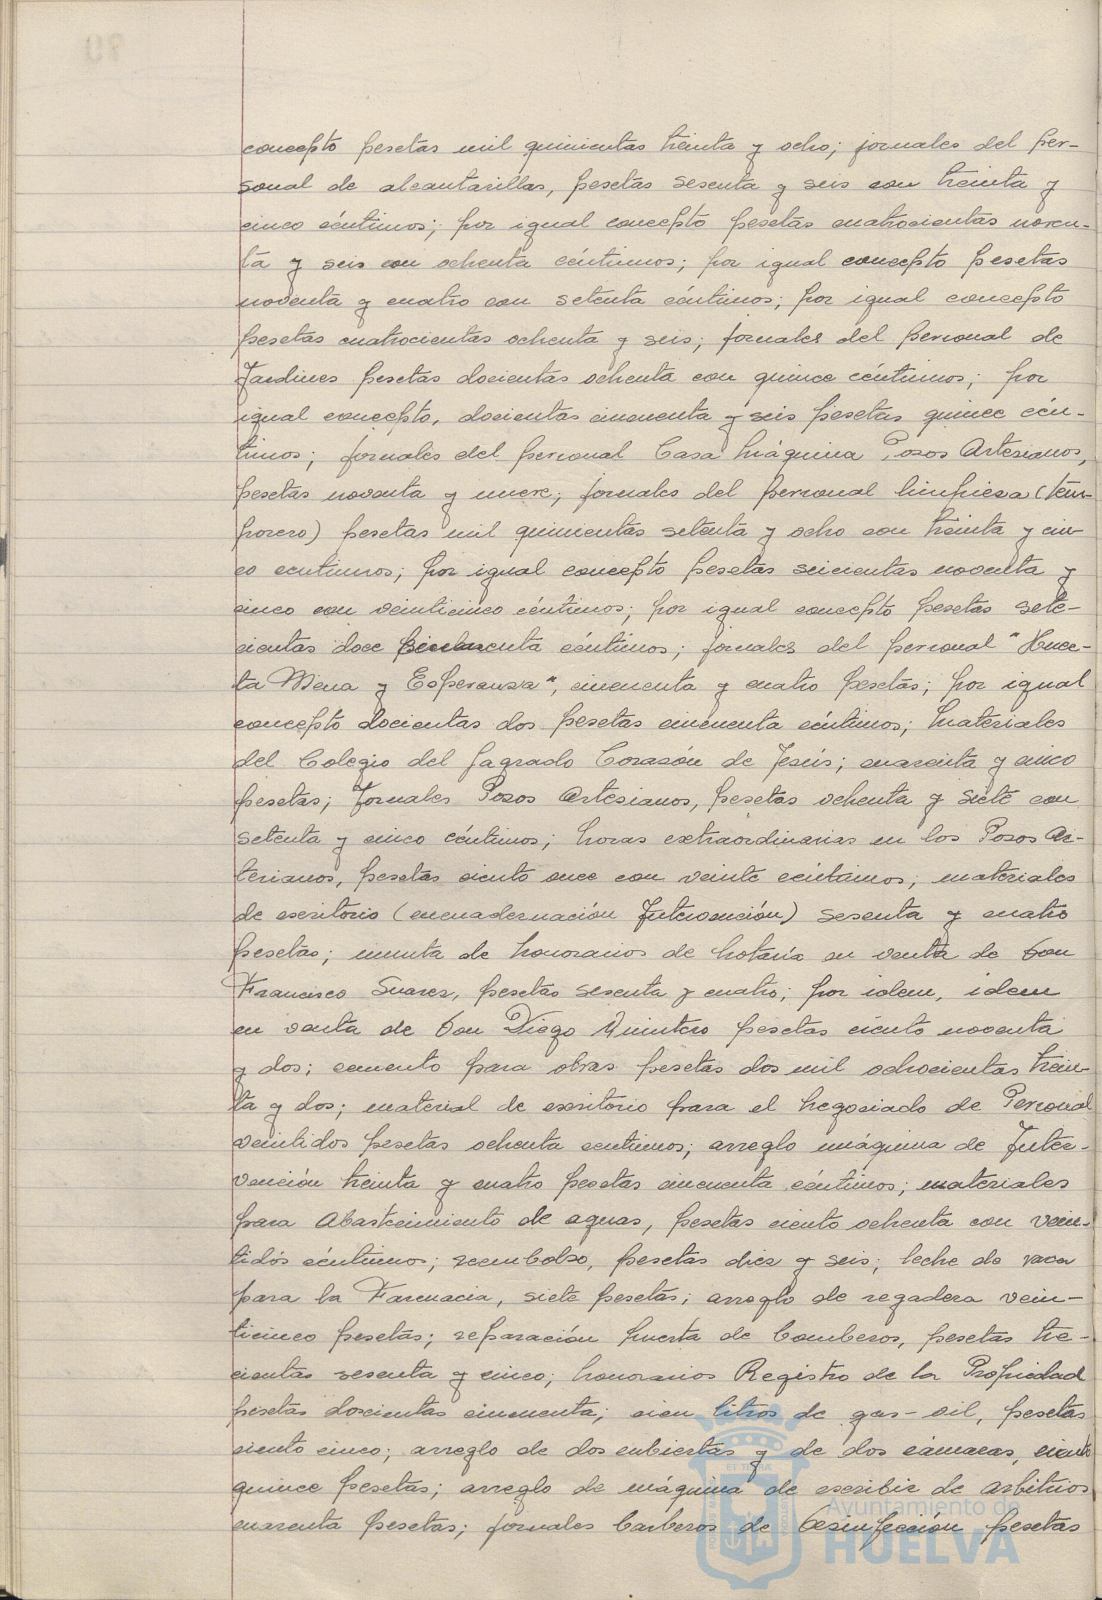 concepto pesetas mil quinientas treinta y ocho; jornales del per-
sonal de alcantarillas, pesetas sesenta y seis con treinta y
cinco céntimos; por igual concepto pesetas cuatrocientas noven-
ta y seis con ochenta céntimos; por igual concepto pesetas
noventa y cuatro con setenta céntimos; por igual concepto
pesetas cuatrocientas ochenta y seis; jornales del personal de
Jardines pesetas docientas ochenta con quince céntimos; por
igual concepto, docientas cincuenta y seis pesetas quince cén-
timos; jornales del personal Casa Máquina Pozos Artesianos,
pesetas noventa y nueve; jornales del personal limpieza (tem-
porero) pesetas mil quinientas setenta y ocho con treinta y cin-
co centimos; por igual concepto pesetas seicientas noventa y
cinco con veinticinco céntimos; por igual concepto pesetas sete-
cientas doce cincuenta céntimos; jornales del personal "Huer-
ta Mena y Esperanza", cincuenta y cuatro pesetas; por igual
concepto docientas dos pesetas cincuenta céntimos; materiales
del Colegio del Sagrado Corazón de Jesús; cuarenta y cinco
pesetas; Jornales Pozos Artesianos, pesetas ochenta y siete con
setenta y cinco céntimos; horas extraordinarias en los Pozos Ar-
tesianos, pesetas ciento once con veinte céntimos; materiales
de escritorio (encuadernación Intervención) sesenta y cuatro
pesetas; minuta de honorarios de Notaría en venta de Don
Francisco Suarez, pesetas sesenta y cuatro; por idem, idem
en venta de Don Diego Quintero pesetas ciento noventa
y dos; cemento para obras pesetas dos mil ochocientas trein-
ta y dos; material de escritorio para el Negociado de Personal
veintidos pesetas ochenta centimos; arreglo máquina de Inter-
vención treinta y cuatro pesetas cincuenta céntimos; materiales
para Abastecimiento de aguas, pesetas ciento ochenta con vein-
tidós céntimos; reembolso, pesetas diez y seis; leche de vaca
para la Farmacia, siete pesetas; arreglo de regadera vein-
ticinco pesetas; reparación puerta de Bomberos, pesetas tre-
cientas sesenta y cinco; honorarios Registro de la Propiedad
pesetas doscientas cincuenta; cien litros de gas-oil, pesetas
ciento cinco; arreglo de dos cubiertas y de dos cámaras, ciento
quince pesetas; arreglo de máquina de escribir de Arbitrios
cuarenta pesetas; jornales barberos de Desinfección pesetas
Ayuntamiento de
HUELVA